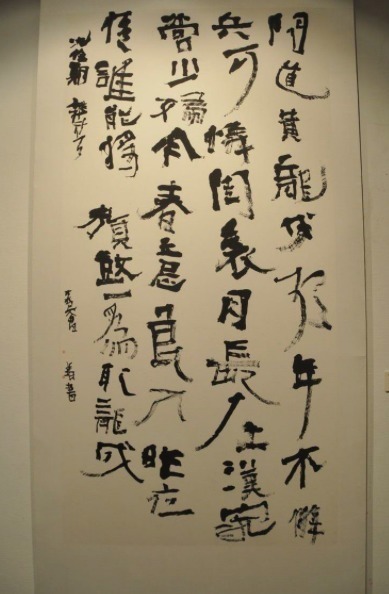 聞道黃龍戍頻年不解
兵可憐閨裏月長在漢家
營少婦今春意良人昨夜
情誰能將旗鼓一為取龍城
沈佺期 雜詩
書